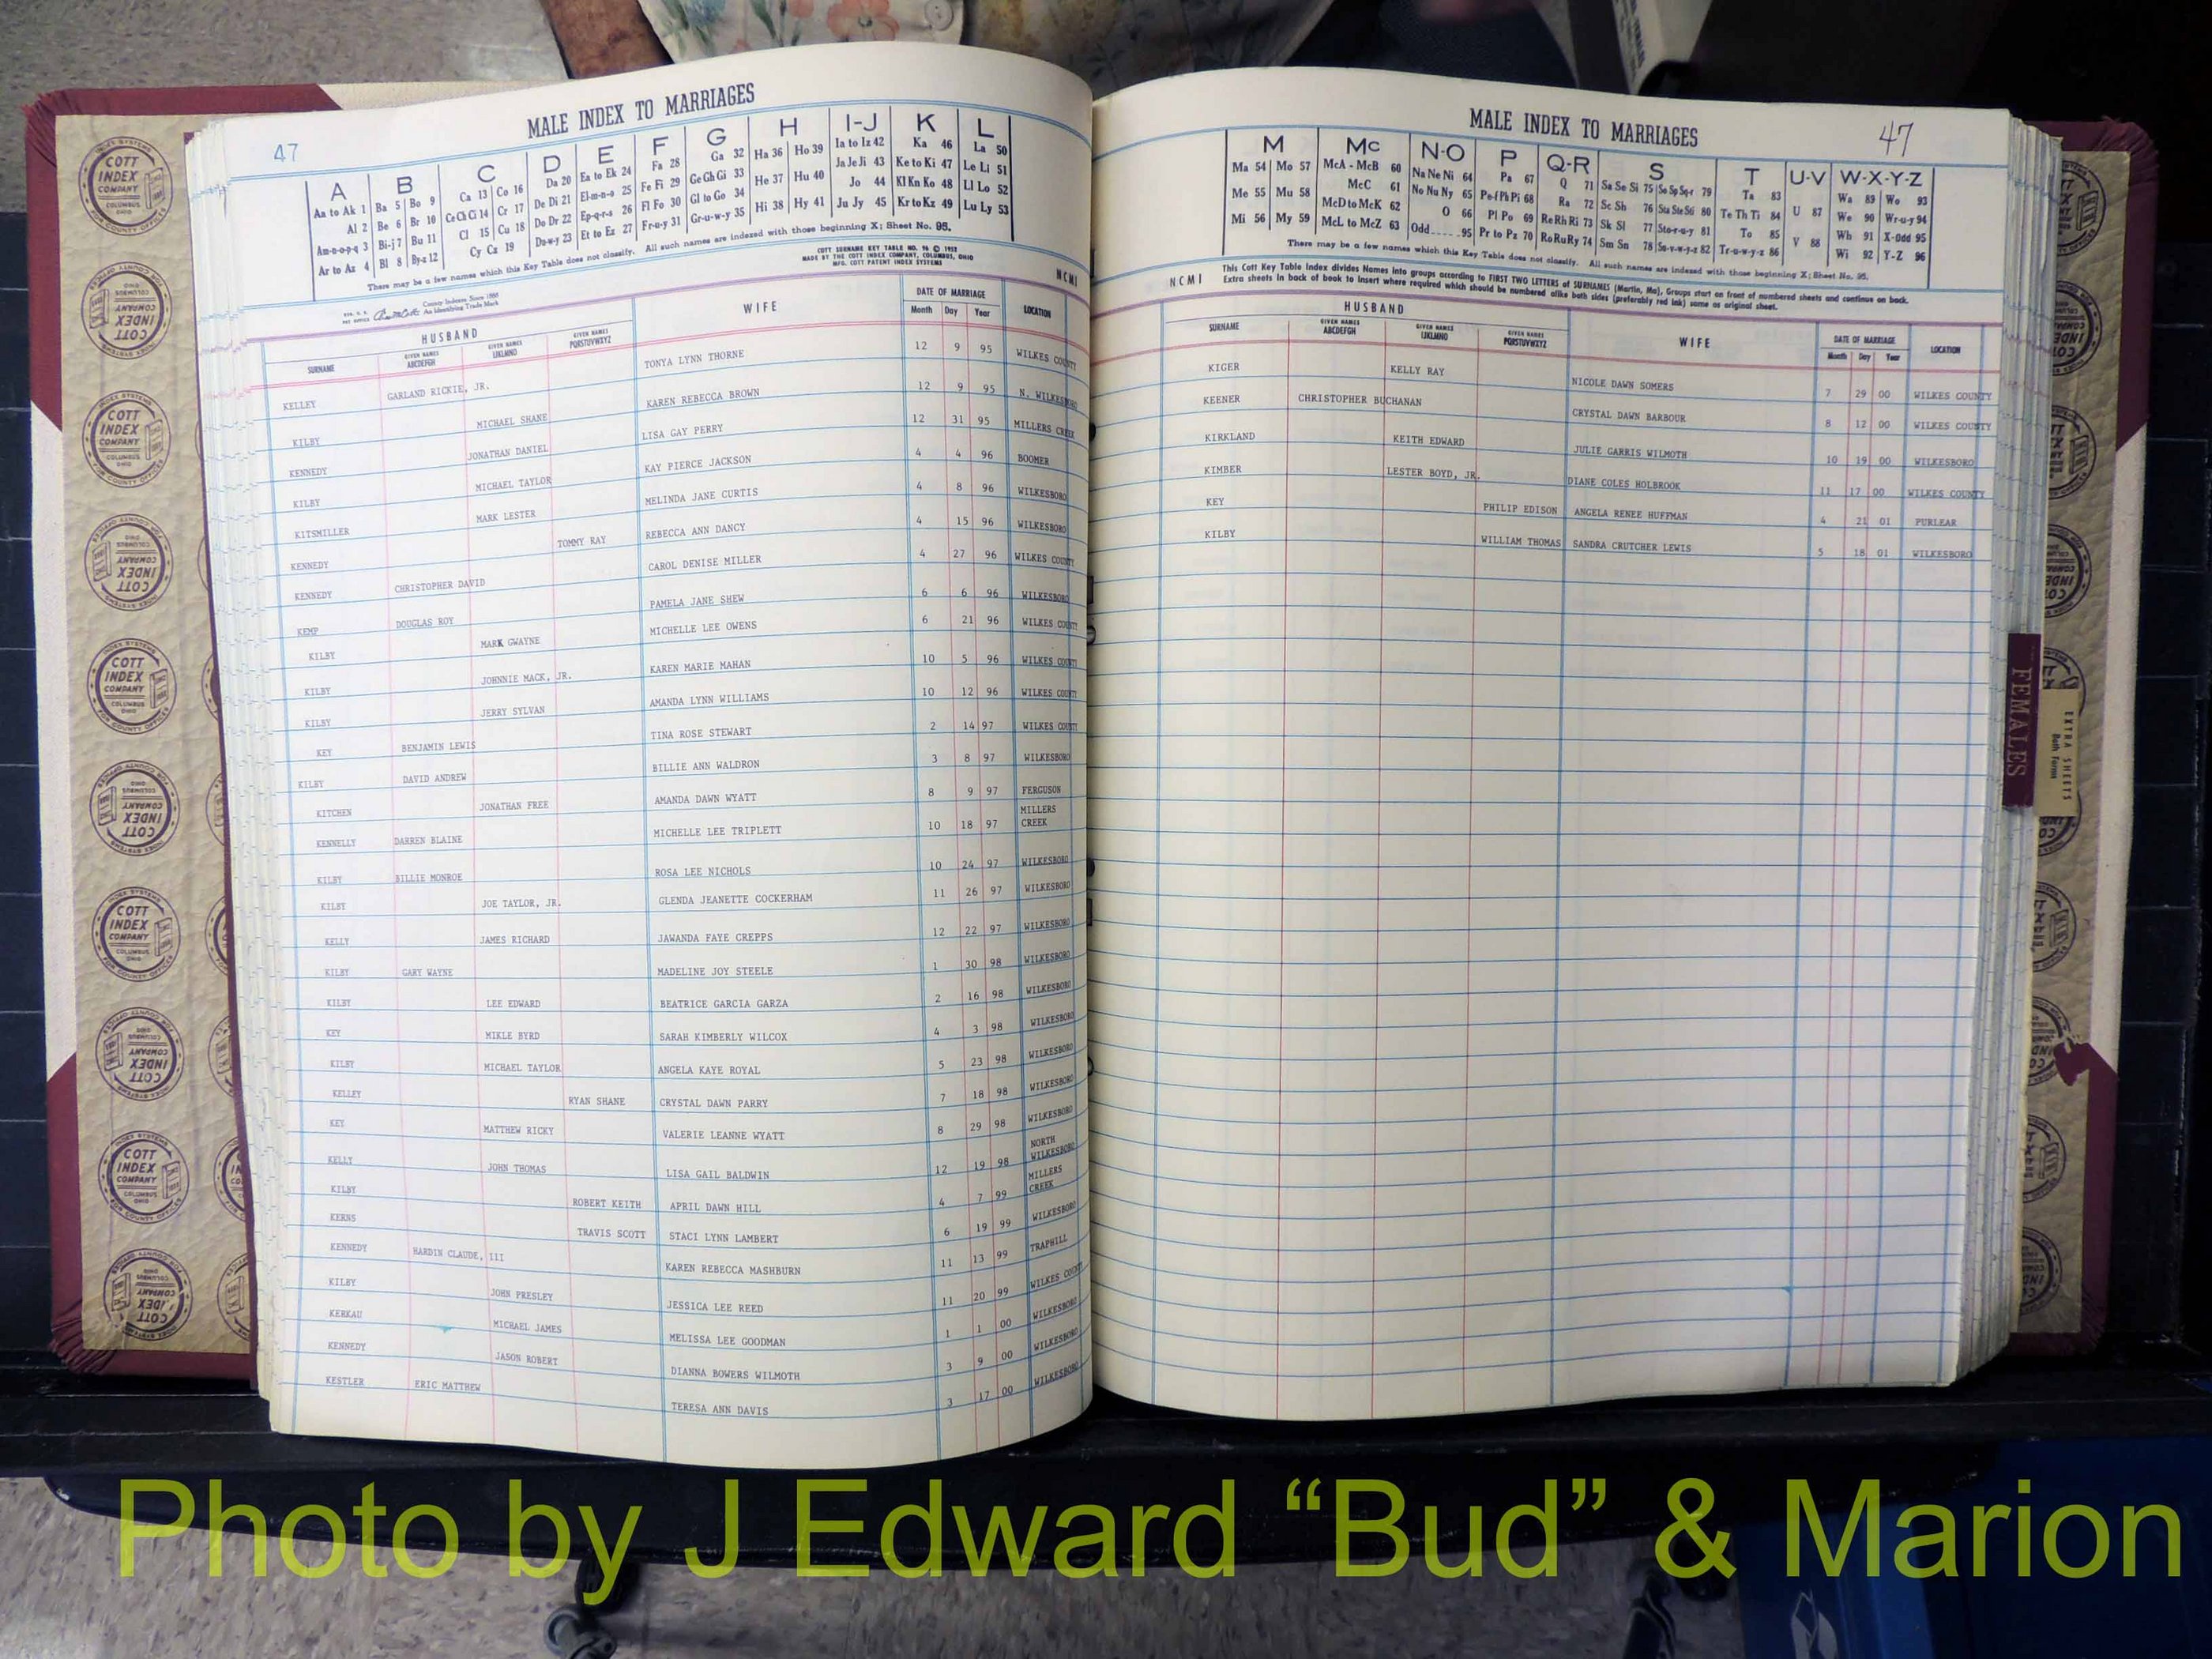 MALE INDEX TO MARRIAGES
47
A B C D E F G H I-J K L
Aa to Ak 1 Ba 5 Bo 9 Ca 13 Co 16 Da 20 Ea to Ek 24 Fa 28 Ga 32 Ha 36 Ho 39 Ia to Iz 42 Ka 46 La 50
Al 2 Be 6 Br 10 Ce Ch Ci 14 Cr 17 De Di 21 El-m-n-o 25 Fe Fi 29 Ge Gh Gi 33 He 37 Hu 40 Ja Je Ji 43 Ke to Ki 47 Le Li 51
Am-n-o-p-q 3 Bi-j 7 Bu 11 Cl 15 Cu 18 Do Dr 22 Ep-q-r-s 26 Fl Fo 30 Gl to Go 34 Hi 38 Hy 41 Jo 44 Kl Kn Ko 48 Ll Lo 52
Ar to Az 4 Bl 8 By-z 12 Cy Cz 19 Du-w-y 23 Et to Ez 27 Fr-u-y 31 Gr-u-w-y 35 Ju Jy 45 Kr to Kz 49 Lu Ly 53
There may be a few names which this Key Table does not classify. All such names are indexed with those beginning X; Sheet No. 95.
COTT SURNAME KEY TABLE NO. 96 © 1952
MADE BY THE COTT INDEX COMPANY, COLUMBUS, OHIO
MFG. COTT PATENT INDEX SYSTEMS
NCMI
County Indexes Since 1888
An Identifying Trade Mark
HUSBAND WIFE DATE OF MARRIAGE LOCATION
SURNAME GIVEN NAMES ABCDEFGH GIVEN NAMES IJKLMNO GIVEN NAMES PQRSTUVWXYZ Month Day Year
KELLEY GARLAND RICKIE, JR. TONYA LYNN THORNE 12 9 95 WILKES COUNTY
KILBY MICHAEL SHANE KAREN REBECCA BROWN 12 9 95 N. WILKESBORO
KENNEDY JONATHAN DANIEL LISA GAY PERRY 12 31 95 MILLERS CREEK
KILBY MICHAEL TAYLOR KAY PIERCE JACKSON 4 4 96 BOOMER
KITSMILLER MARK LESTER MELINDA JANE CURTIS 4 8 96 WILKESBORO
KENNEDY TOMMY RAY REBECCA ANN DANCY 4 15 96 WILKESBORO
KENNEDY CHRISTOPHER DAVID CAROL DENISE MILLER 4 27 96 WILKES COUNTY
KEMP DOUGLAS ROY PAMELA JANE SHEW 6 6 96 WILKESBORO
KILBY MARK GWAYNE MICHELLE LEE OWENS 6 21 96 WILKES COUNTY
KILBY JOHNNIE MACK, JR. KAREN MARIE MAHAN 10 5 96 WILKES COUNTY
KILBY JERRY SYLVAN AMANDA LYNN WILLIAMS 10 12 96 WILKES COUNTY
KEY BENJAMIN LEWIS TINA ROSE STEWART 2 14 97 WILKES COUNTY
KILBY DAVID ANDREW BILLIE ANN WALDRON 3 8 97 WILKESBORO
KITCHEN JONATHAN FREE AMANDA DAWN WYATT 8 9 97 FERGUSON
KENNELLY DARREN BLAINE MICHELLE LEE TRIPLETT 10 18 97 MILLERS CREEK
KILBY BILLIE MONROE ROSA LEE NICHOLS 10 24 97 WILKESBORO
KILBY JOE TAYLOR, JR. GLENDA JEANETTE COCKERHAM 11 26 97 WILKESBORO
KELLY JAMES RICHARD JAWANDA FAYE CREPPS 12 22 97 WILKESBORO
KILBY GARY WAYNE MADELINE JOY STEELE 1 30 98 WILKESBORO
KILBY LEE EDWARD BEATRICE GARCIA GARZA 2 16 98 WILKESBORO
KEY MIKLE BYRD SARAH KIMBERLY WILCOX 4 3 98 WILKESBORO
KILBY MICHAEL TAYLOR ANGELA KAYE ROYAL 5 23 98 WILKESBORO
KELLEY RYAN SHANE CRYSTAL DAWN PARRY 7 18 98 WILKESBORO
KEY MATTHEW RICKY VALERIE LEANNE WYATT 8 29 98 WILKESBORO
KELLY JOHN THOMAS LISA GAIL BALDWIN 12 19 98 NORTH WILKESBORO
KILBY ROBERT KEITH APRIL DAWN HILL 4 7 99 MILLERS CREEK
KERNS TRAVIS SCOTT STACI LYNN LAMBERT 6 19 99 WILKESBORO
KENNEDY HARDIN CLAUDE, III KAREN REBECCA MASHBURN 11 13 99 TRAPHILL
KILBY JOHN PRESLEY JESSICA LEE REED 11 20 99 WILKES COUNTY
KERKAU MICHAEL JAMES MELISSA LEE GOODMAN 1 1 00 WILKESBORO
KENNEDY JASON ROBERT DIANNA BOWERS WILMOTH 3 9 00 WILKESBORO
KESTLER ERIC MATTHEW TERESA ANN DAVIS 3 17 00 WILKESBORO
MALE INDEX TO MARRIAGES
47
M Mc N-O P Q-R S T U-V W-X-Y-Z
Ma 54 Mo 57 McA - McB 60 Na Ne Ni 64 Pa 67 Q 71 Sa Se Si 75 So Sp Sq-r 79 Ta 83 U 87 Wa 89 Wo 93
Me 55 Mu 58 McC 61 No Nu Ny 65 Pe-f Ph Pi 68 Ra 72 Sc Sh 76 Sta Ste Sti 80 Te Th Ti 84 V 88 We 90 Wr-u-y 94
Mi 56 My 59 McD to McK 62 O 66 Pl Po 69 Re Rh Ri 73 Sk Sl 77 Sto-r-u-y 81 To 85 Wh 91 X-Odd 95
McL to McZ 63 Odd.....95 Pr to Pz 70 Ro Ru Ry 74 Sm Sn 78 Su-v-w-y-z 82 Tr-o-w-y-z 86 Wi 92 Y-Z 96
There may be a few names which this Key Table does not classify. All such names are indexed with those beginning X; Sheet No. 95.
NCMI
This Cott Key Table Index divides Names into groups according to FIRST TWO LETTERS of SURNAMES (Martin, Ma), Groups start on front of numbered sheets and continue on back.
Extra sheets in back of book to insert where required which should be numbered alike both sides (preferably red ink) same as original sheet.
HUSBAND WIFE DATE OF MARRIAGE LOCATION
SURNAME GIVEN NAMES ABCDEFGH GIVEN NAMES IJKLMNO GIVEN NAMES PQRSTUVWXYZ Month Day Year
KIGER KELLY RAY NICOLE DAWN SOMERS 7 29 00 WILKES COUNTY
KEENER CHRISTOPHER BUCHANAN CRYSTAL DAWN BARBOUR 8 12 00 WILKES COUNTY
KIRKLAND KEITH EDWARD JULIE GARRIS WILMOTH 10 19 00 WILKESBORO
KIMBER LESTER BOYD, JR. DIANE COLES HOLBROOK 11 17 00 WILKES COUNTY
KEY PHILIP EDISON ANGELA RENEE HUFFMAN 4 21 01 PURLEAR
KILBY WILLIAM THOMAS SANDRA CRUTCHER LEWIS 5 18 01 WILKESBORO
FEMALES
EXTRA SHEETS
Both Forms
COTT INDEX COMPANY
COLUMBUS OHIO
INDEX SYSTEMS
FOR COUNTY OFFICES
Photo by J Edward “Bud” & Marion